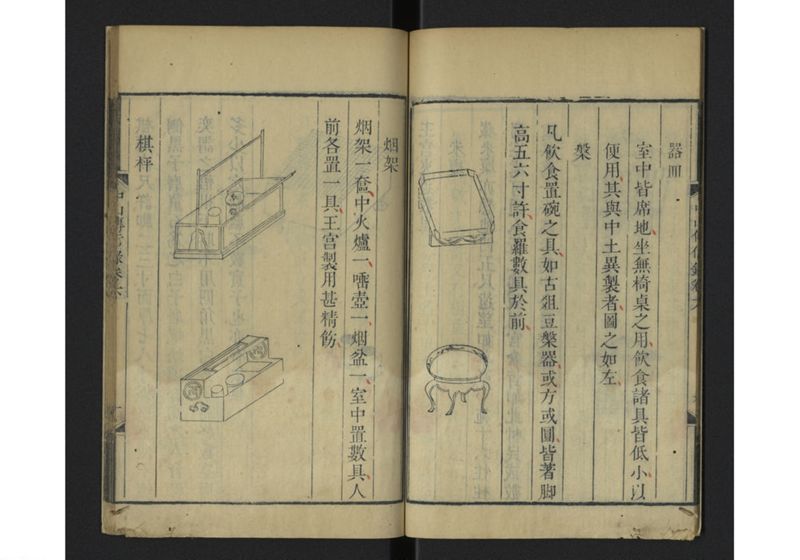 器皿
室中皆席地坐無椅桌之用飲食諸具皆低小以
便用其與中土異製者圖之如左
槃
凡飲食置碗之具如古俎豆槃器或方或圓皆著脚
高五六寸許食羅數具於前
烟架
烟架一奩中火爐一㗩壺一烟盆一室中置數具人
前各置一具王宮製用甚精飭
棋枰